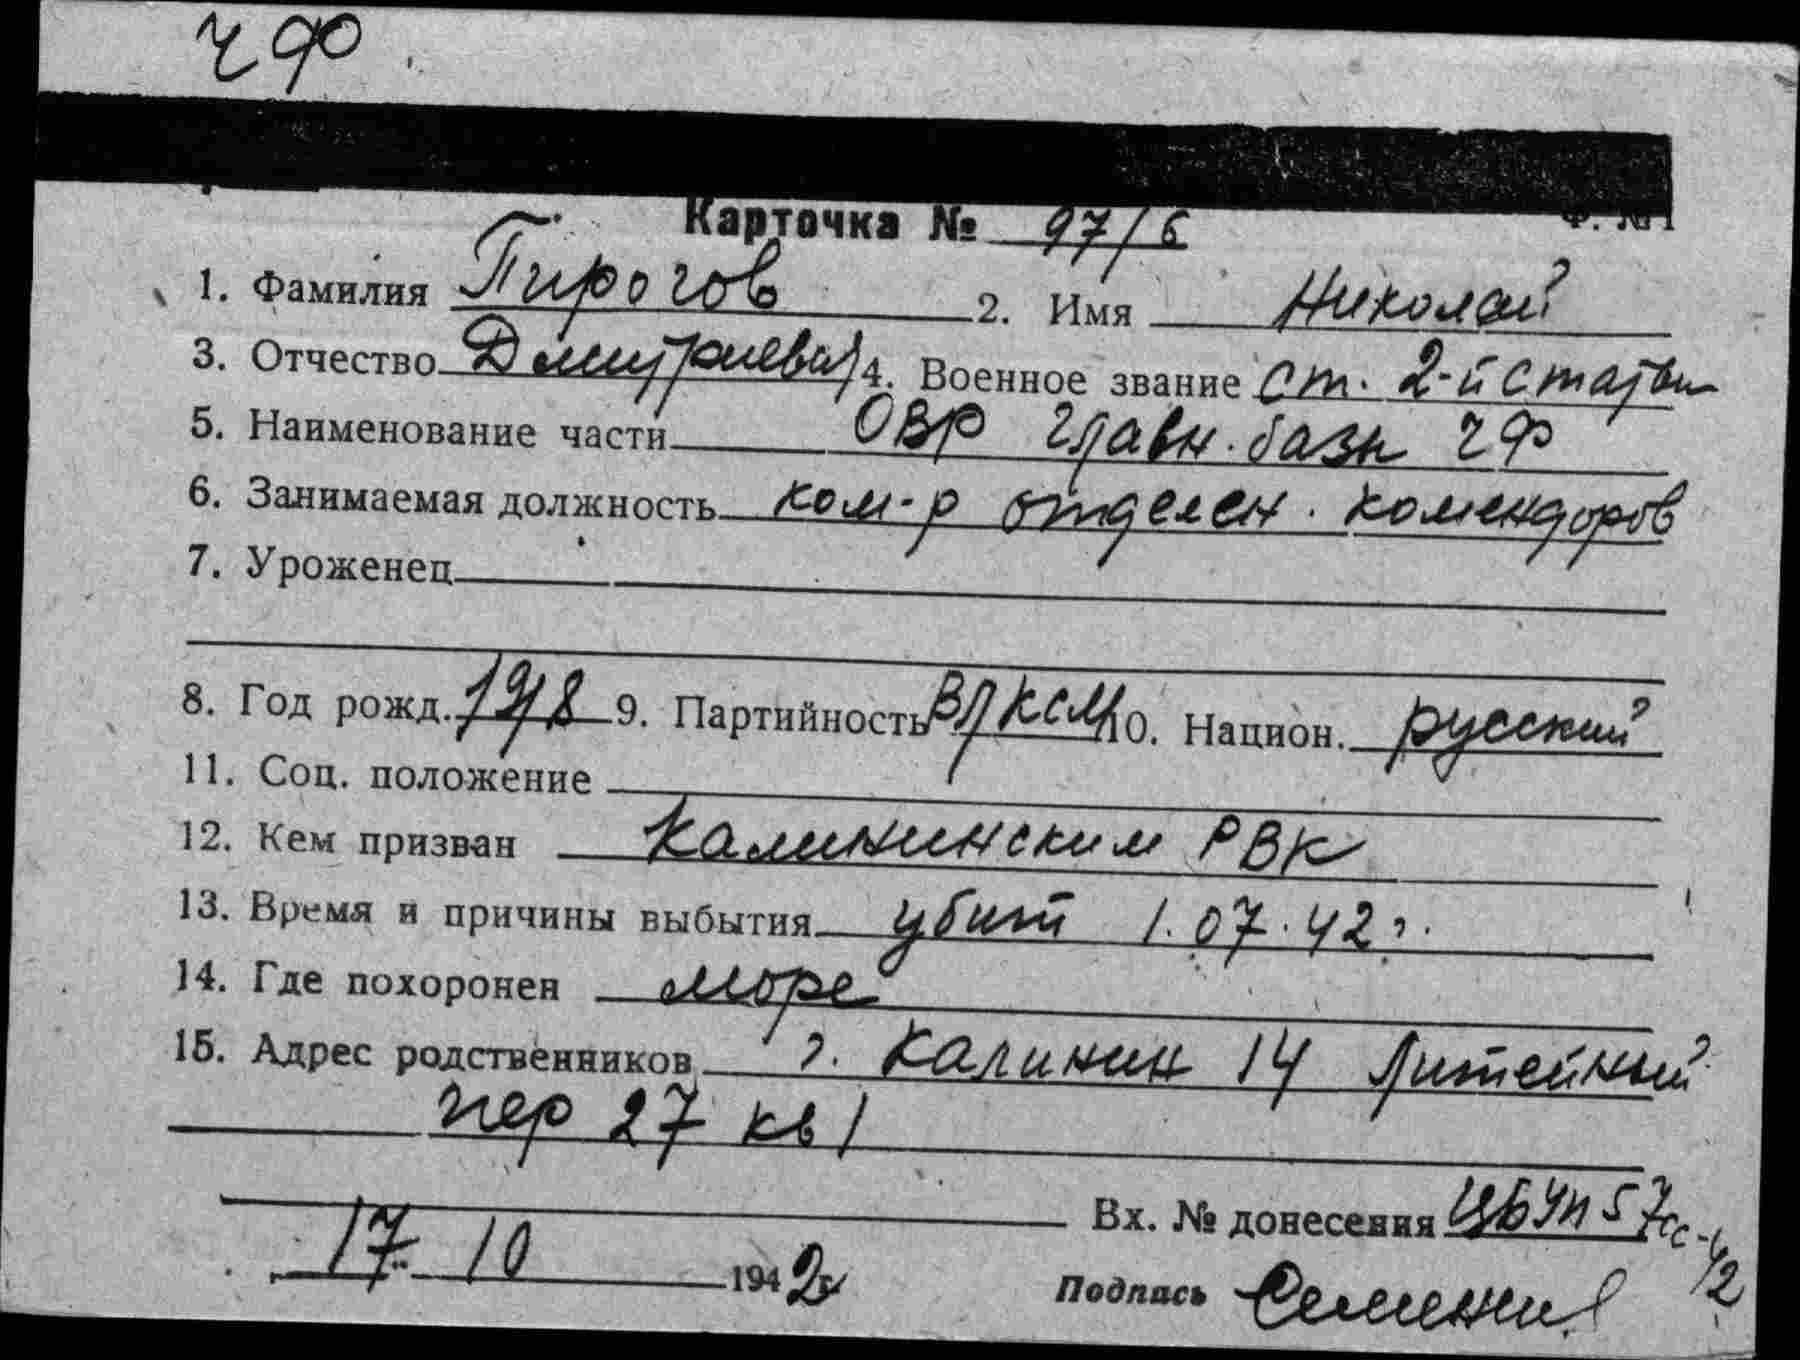 ЧФ.
Карточка № 97/6
Ф. №1
1. Фамилия Пирогов 2. Имя Николай
3. Отчество Дмитриевич 4. Военное звание ст. 2-й статьи
5. Наименование части ОВР главн. базы ЧФ
6. Занимаемая должность ком-р отделен. комендоров
7. Уроженец
8. Год рожд. 1918 9. Партийность ВЛКСМ 10. Национ. русский
11. Соц. положение
12. Кем призван Калининским РВК
13. Время и причины выбытия убит 1.07.42 г.
14. Где похоронен море
15. Адрес родственников г. Калинин 14 Литейный
пер 27 кв 1
Вх. № донесения ЦБУП 57сс-42
17 10 1942 г.
Подпись